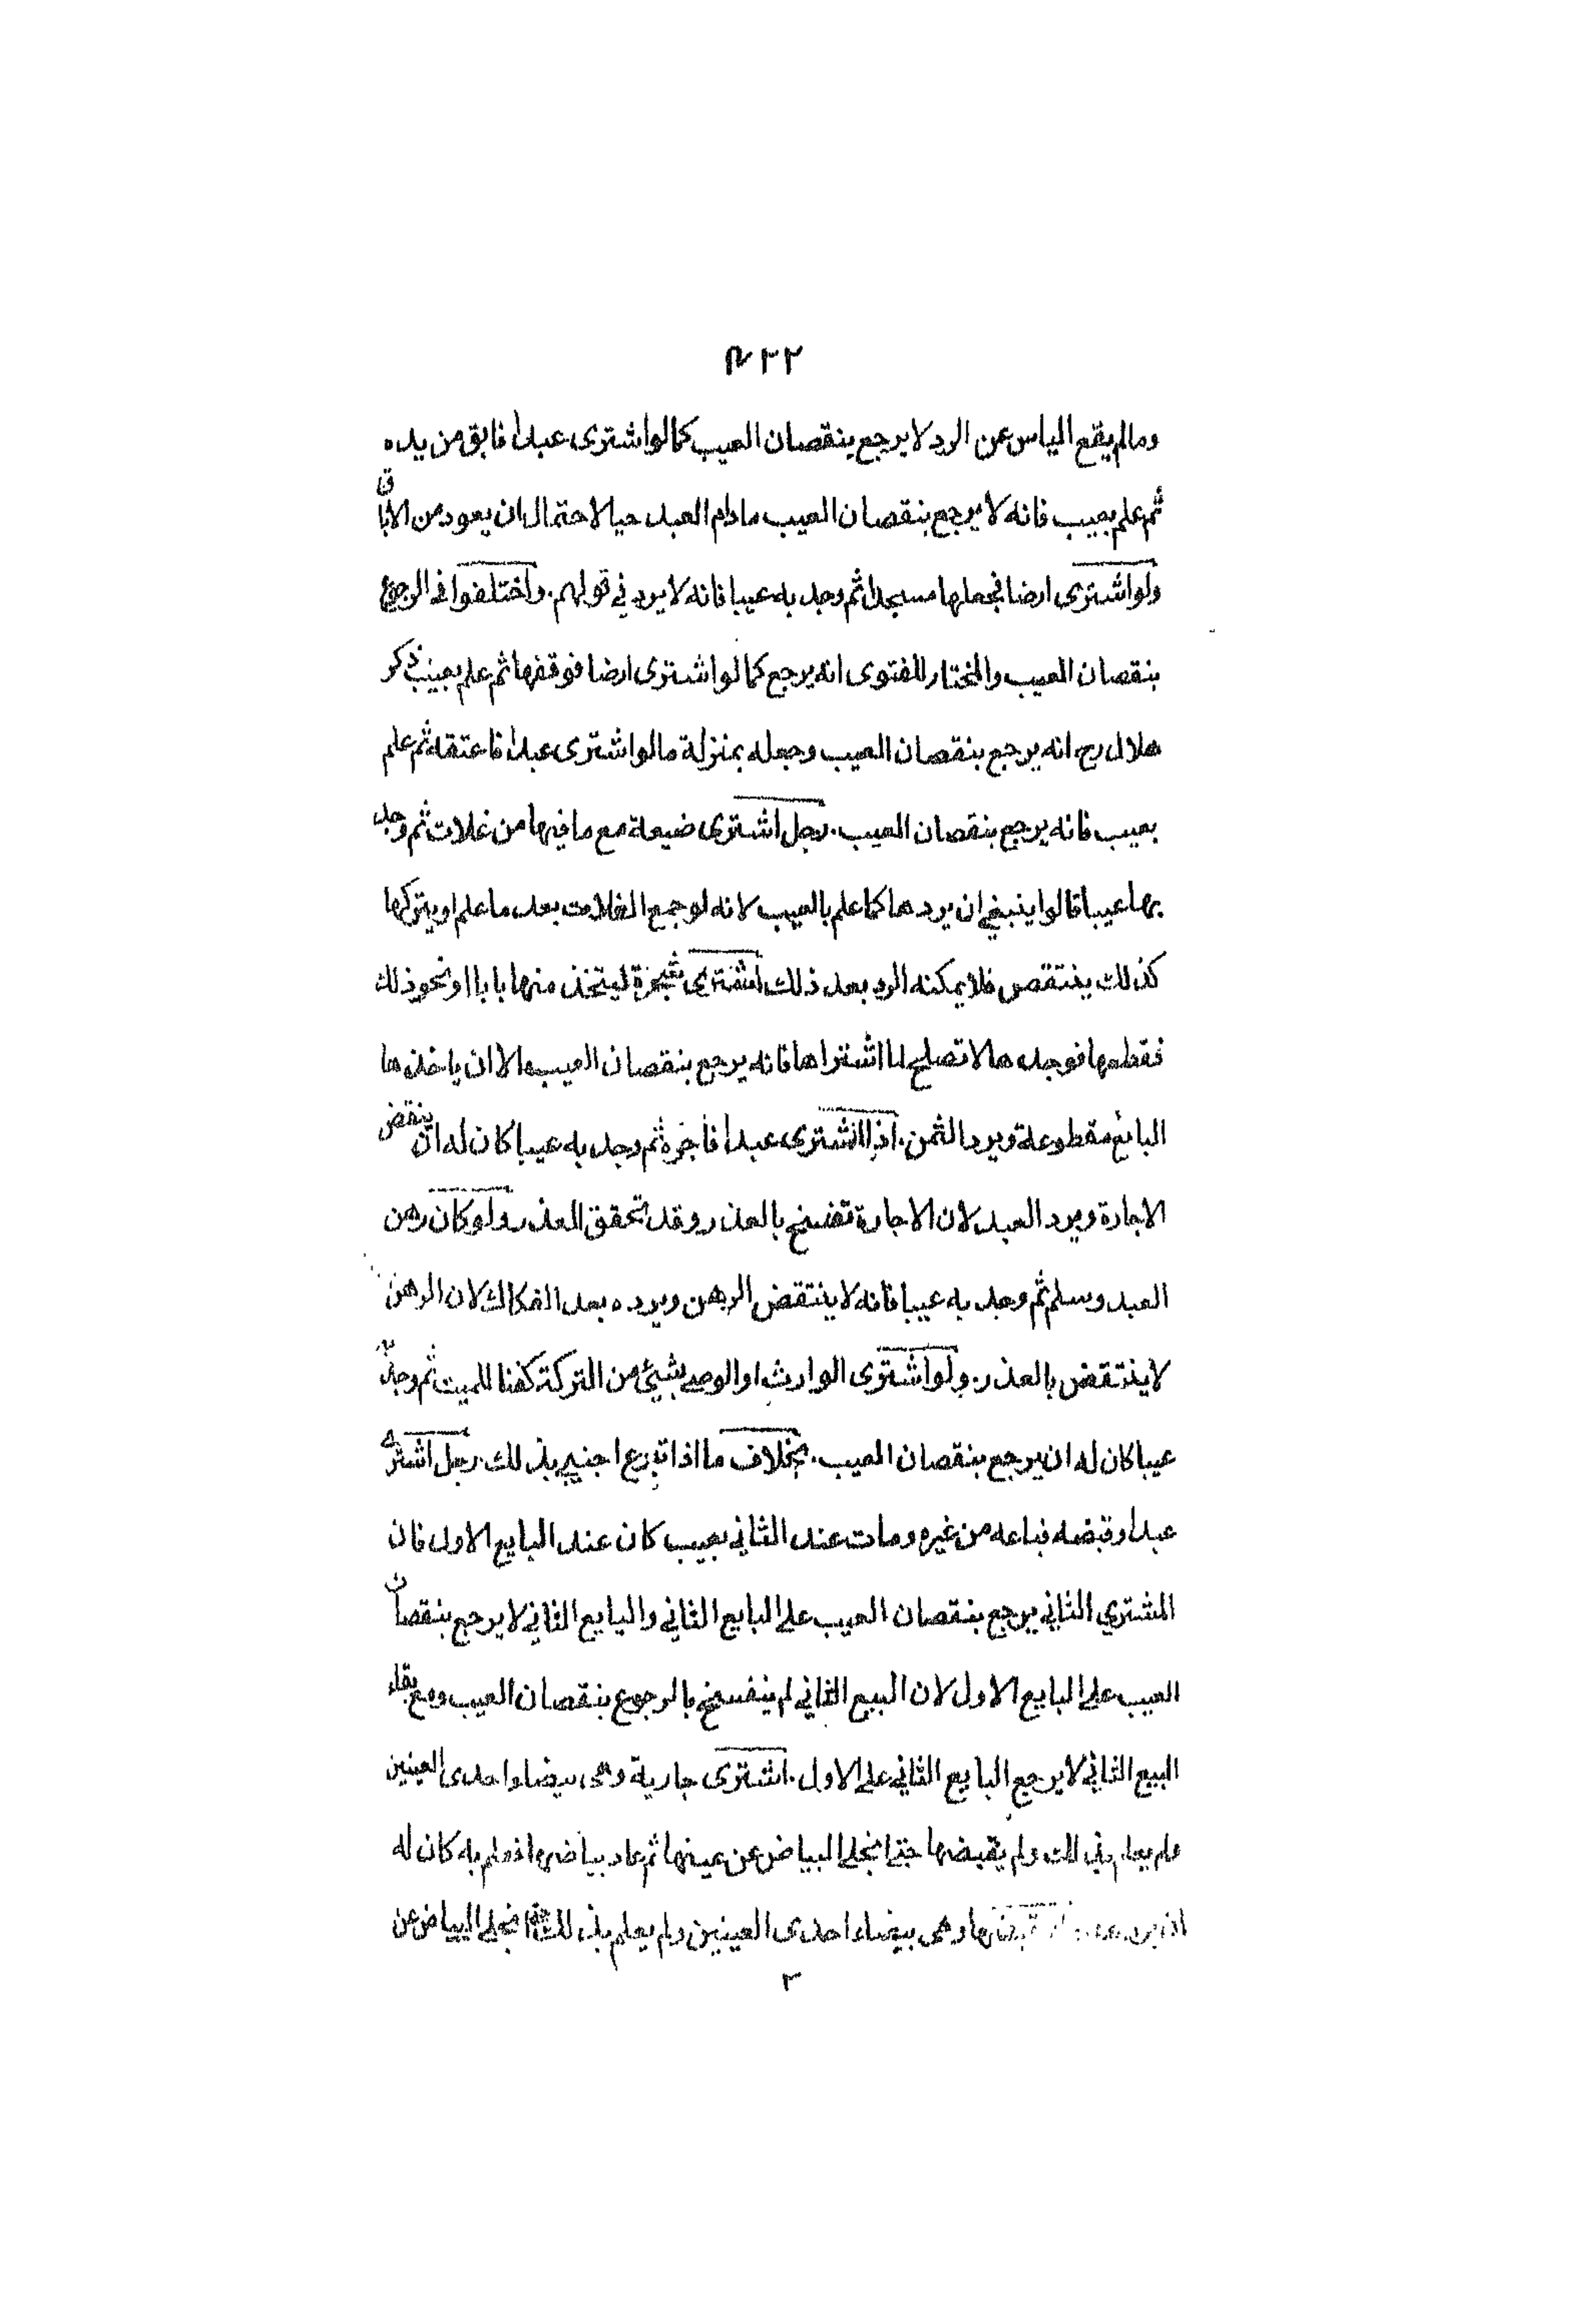 ٤٢٢
ومالم يقع الياس عن الرد لا يرجع بنقصان العيب كما لو اشترى عبدا فابق من يده
ثم علم بعيب فانه لا يرجع بنقصان العيب مادام العبد حيا لاحتمال ان يعود من الاباق
ولو اشترى ارضا فجعلها مسجدا ثم وجد به عيبا فانه لا يرد في قولهم. واختلفوا في الرجوع
بنقصان العيب والمختار للفتوى انه يرجع كما لو اشترى ارضا فوقفها ثم علم بعيب ذكر
هلال رح انه يرجع بنقصان العيب وجعله بمنزلة مالو اشترى عبدا فاعتقه ثم علم
بعيب فانه يرجع بنقصان العيب. رجل اشترى ضيعة مع ما فيها من غلات ثم وجد
بها عيبا قالوا ينبغي ان يردها كما علم بالعيب لانه لو جمع الغلات بعد ما علم او يتركها
كذلك ينتقص فلا يمكنه الرد بعد ذلك اشترى شجرة ليتخذ منها بابا او نحو ذلك
فقطعها فوجدها لا تصلح لما اشتراها فانه يرجع بنقصان العيب الا ان ياخذها
البائع مقطوعة ويرد الثمن. اذا اشترى عبدا فاجره ثم وجد به عيبا كان له ان ينقض
الاجارة ويرد العبد لان الاجارة تفسخ بالعذر وقد تحقق العذر ولو كان رهن
العبد وسلم ثم وجد به عيبا فانه لا ينتقض الرهن ويرده بعد الفكاك لان الرهن
لا ينتقض بالعذر. ولو اشترى الوارث او الوصي بشيئ من التركة كفنا للميت ثم وجد به
عيبا كان له ان يرجع بنقصان العيب. بخلاف ما اذا تبرع اجنبي بذلك. رجل اشترى
عبدا وقبضه فباعه من غيره ومات عند الثاني بعيب كان عند البايع الاول فان
المشتري الثاني يرجع بنقصان العيب على البايع الثاني والبايع الثاني لا يرجع بنقصان
العيب على البايع الاول لان البيع الثاني لم ينفسخ بالرجوع بنقصان العيب ومع بقاء
البيع الثاني لا يرجع البايع الثاني على الاول. اشترى جارية وهى بيضاء احدى العينين
ولم يعلم بذلك ولم يقبضها حتى انجلى البياض عن عينها ثم عاد بياضها فعلم به كان له
ان يرد قبضها وهى بيضاء احدى العينين ولم يعلم بذلك ثم انجلى البياض عن
٣